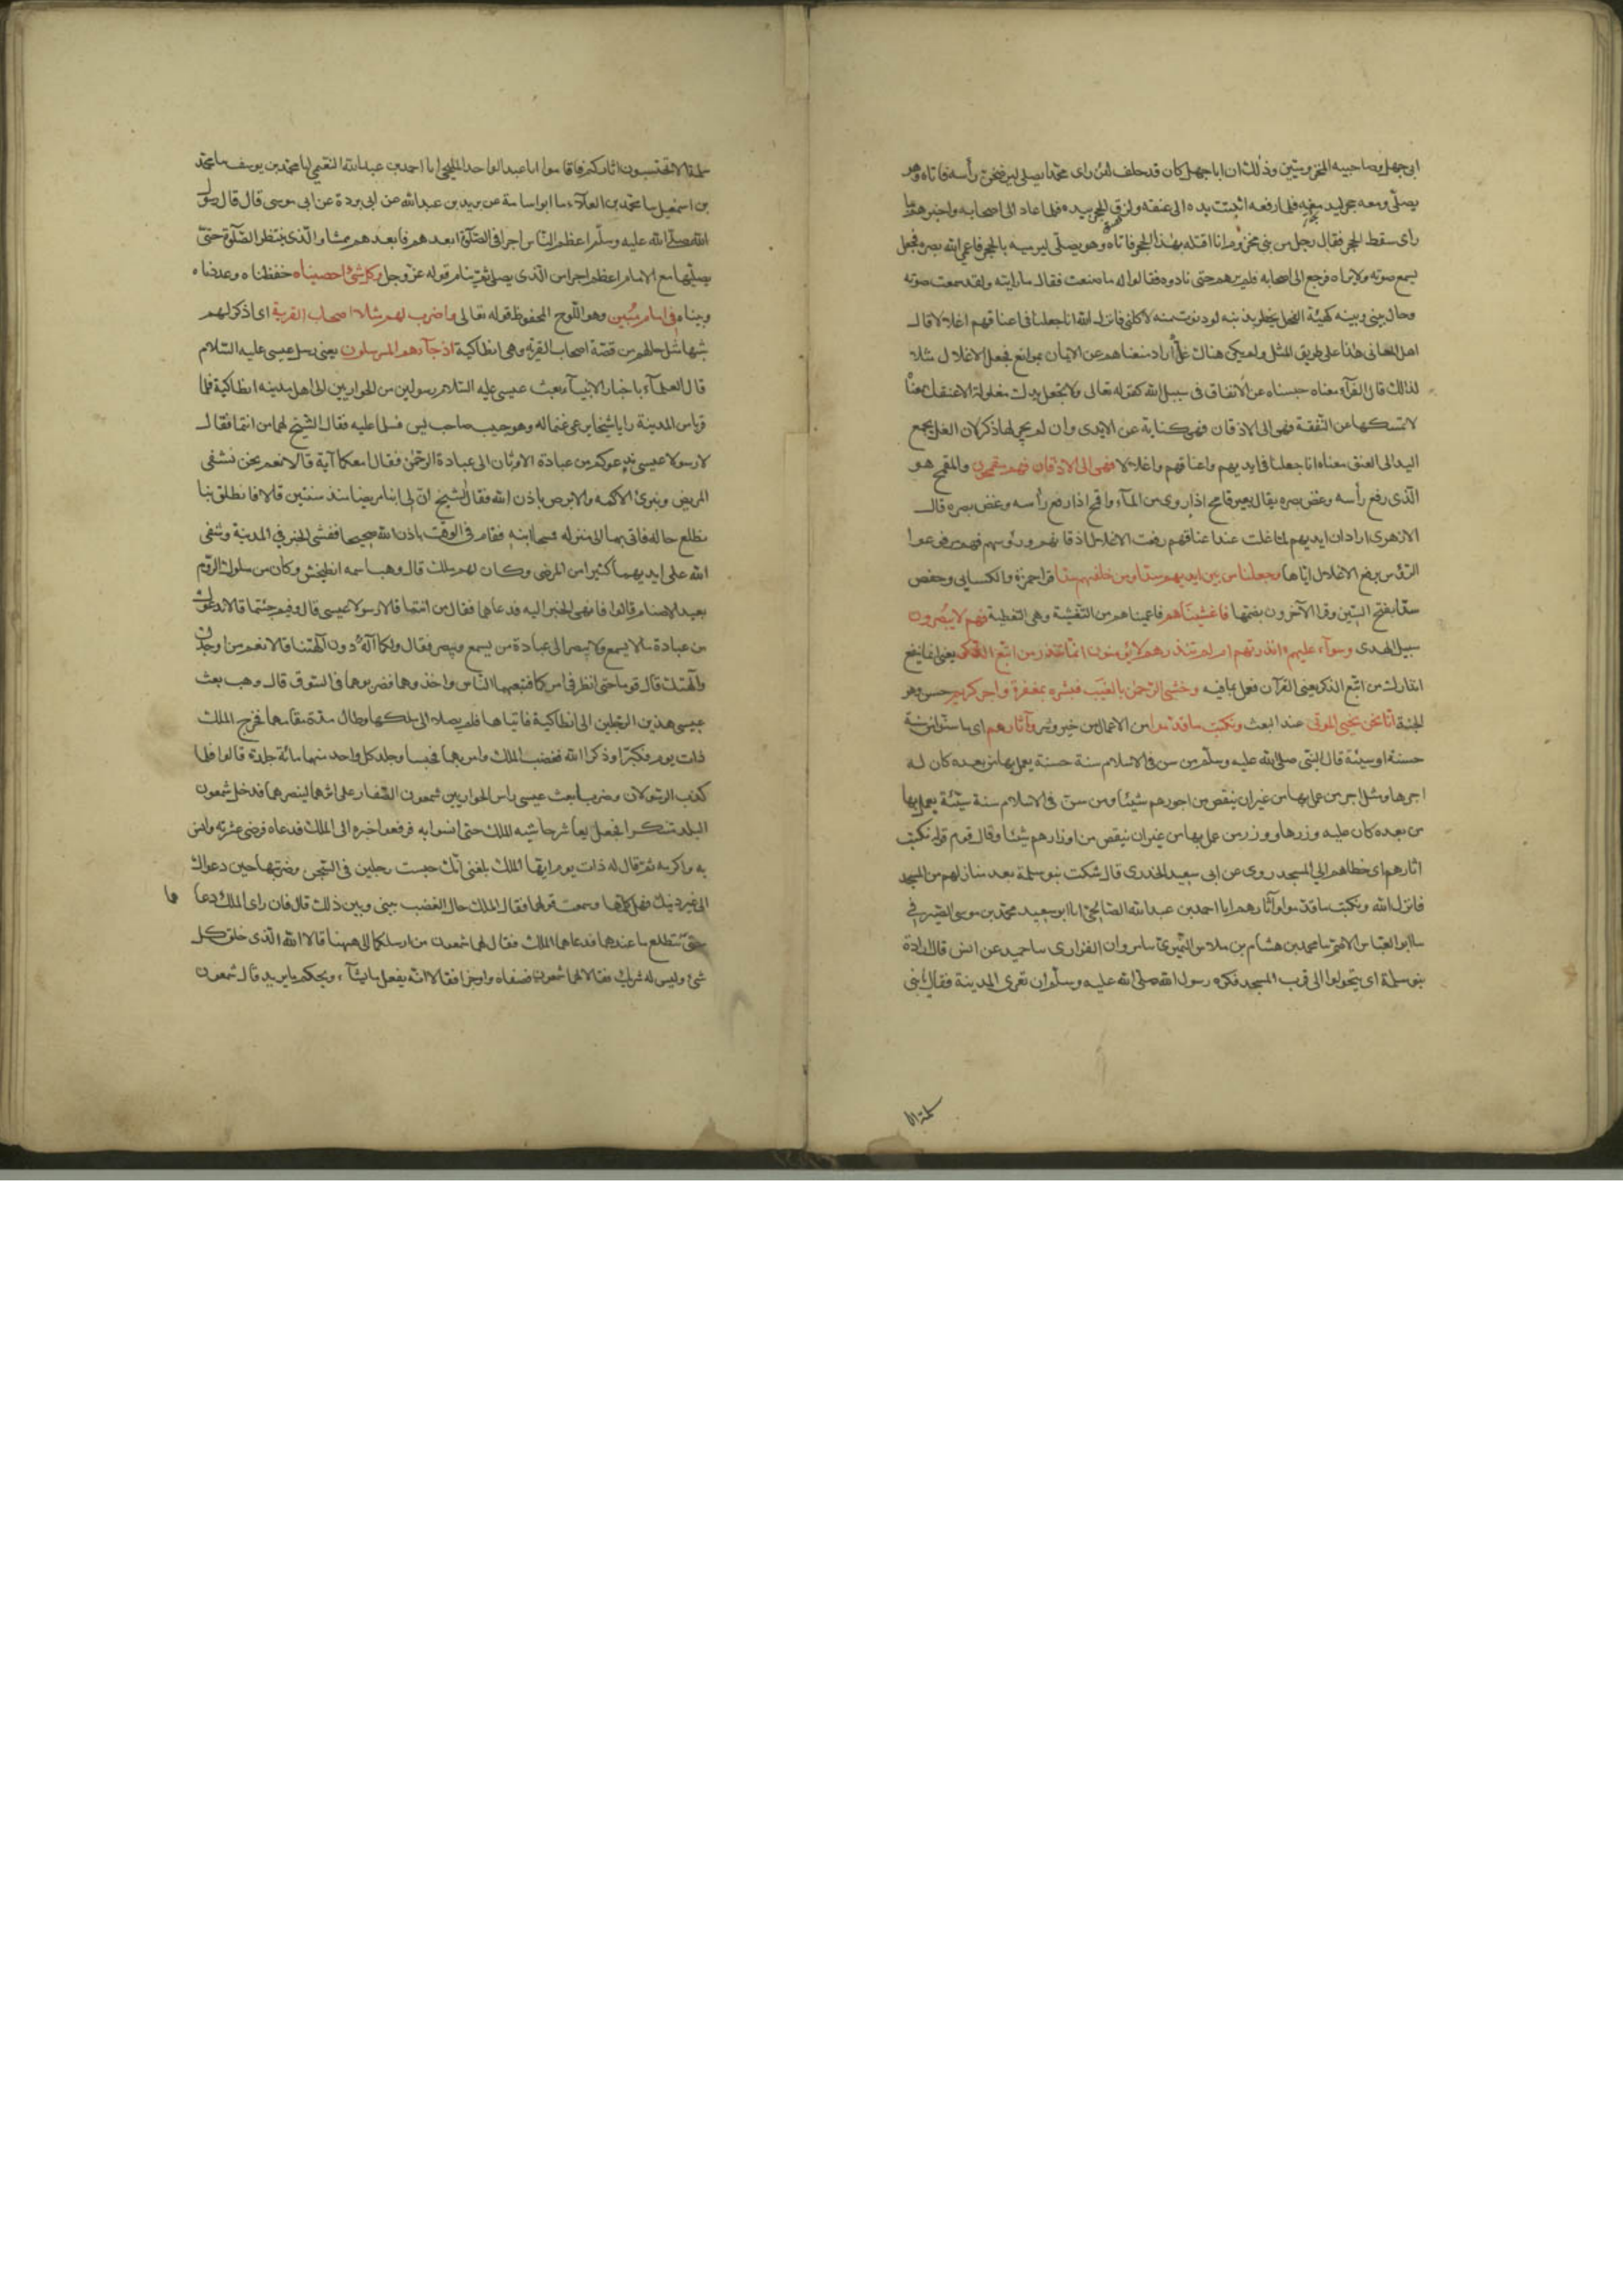 ابى جهل وصاحبيه المخزوميتين وذلك ان ابا جهل كان قد حلف لئن راى محمدا يصلى ليرضخن رأسه فاتاه وهو
يصلى ومعه حجر ليدمغه فلما رفعه اثبتت يده الى عنقه ولزق الحجر بيده فلما عاد الى اصحابه واخبرهم بما
رأى سقط الحجر فقال رجل من بنى مخزوم انا اقتله بهذا الحجر فاتاه وهو يصلى ليرميه بالحجر فاعمى الله بصره فجعل
يسمع صوته ولا يراه فرجع الى اصحابه فلم يرهم حتى نادوه فقالوا له ما صنعت فقال ما رايته ولقد سمعت صوته
وحال بينى وبينه كهيئة الفحل يخطر بذنبه لو دنوت منه لاكلنى فانزل الله انا جعلنا فى اعناقهم اغلالا قال
اهل المعانى هذا على طريق المثل ولم يكن هناك غل اراد منعناهم عن الايمان بموانع فجعل الاغلال مثلا
لذلك قال الفرآء معناه حبسناهم عن الانفاق فى سبيل الله كقوله تعالى ولا تجعل يدك مغلولة الى عنقك معناه
لا تمسكها عن النفقة فهى الى الاذقان فهى كناية عن الايدى وان لم يجر لها ذكر لان الغل يجمع
اليد الى العنق معناه انا جعلنا فى ايديهم واعناقهم واغلالا فهى الى الاذقان فهم مقمحون والمقمح هو
الذى رفع رأسه وغض بصره يقال بعير قامح اذا روى من المآء واقمح اذا رفع رأسه وغض بصره قال
الازهرى اراد ان ايديهم لما غلت عند اعناقهم رفعت الاغلال اذقانهم ورؤسهم فهم مرفوعوا
الرؤس برفع الاغلال اياها وجعلنا من بين ايديهم سدا ومن خلفهم سدا قرا حمزة والكسايى وحفص
سدا بفتح السين وقرا الآخرون بضمها فاغشيناهم فاعميناهم من التغشية وهى التغطية فهم لا يبصرون
سبيل الهدى وسوآء عليهم ءانذرتهم ام لم تنذرهم لا يؤمنون انما تنذر من اتبع الذكر يعنى انما ينفع
انذارك من اتبع الذكر يعنى القرآن فعمل بما فيه وخشى الرحمن بالغيب فبشره بمغفرة واجر كريم حسن وهو
الجنة انا نحن نحيى الموتى عند البعث ونكتب ما قدموا من الاعمال من خير وشر وآثارهم اى ما سنوا من سنة
حسنة او سيئة قال النبى صلى الله عليه وسلم من سن فى الاسلام سنة حسنة يعمل بها من بعده كان له
اجرها ومثل اجر من عمل بها من غير ان ينقص من اجورهم شيئا ومن سن فى الاسلام سنة سيئة يعمل بها
من بعده كان عليه وزرها ووزر من عمل بها من غير ان ينقص من اوزارهم شيئا وقال قوم قوله نكتب
اثارهم اى خطاهم الى المسجد روى عن ابى سعيد الخدرى قال شكت بنو سلمة بعد منازلهم من المسجد
فانزل الله ونكتب ما قدموا وآثارهم انا احمد بن عبد الله الصالحى انا ابو سعيد محمد بن موسى الصيرفى
سا ابو العباس الاصم سا محمد بن هشام بن ملاس النميرى سا مروان الفزارى سا حميد عن انس قال اراد
بنو سلمة ان يتحولوا الى قرب المسجد فكره رسول الله صلى الله عليه وسلم ان تعرى المدينة فقال يا بنى
سلمة الا
سلمة الا تحتسبون آثاركم فاقاموا انا عبد الواحد المليحى انا احمد بن عبد الله النعيمى انا محمد بن يوسف سا محمد
بن اسمعيل سا محمد بن العلآء سا ابو اسامة عن بريد بن عبد الله عن ابى بردة عن ابى موسى قال قال رسول
الله صلى الله عليه وسلم اعظم الناس اجرا فى الصلوة ابعدهم فابعدهم ممشا والذى ينتظر الصلوة حتى
يصليها مع الامام اعظم اجرا من الذى يصلى ثم ينام قوله عز وجل وكل شئ احصيناه حفظناه وعددناه
وبيناه فى امام مبين وهو اللوح المحفوظ قوله تعالى واضرب لهم مثلا اصحاب القرية اى اذكر لهم
شبها مثل حالهم من قصة اصحاب القرية وهى انطاكية اذ جآءها المرسلون يعنى رسل عيسى عليه السلام
قال العلمآء باخبار الانبيآء بعث عيسى عليه السلام رسولين من الحواريين الى اهل مدينة انطاكية فلما
قربا من المدينة رايا شيخا يرعى غنما له وهو حبيب صاحب يس فسلما عليه فقال الشيخ لهما من انتما فقالا
لا رسولا عيسى ندعوكم من عبادة الاوثان الى عبادة الرحمن فقال امعكما آية قالا نعم نحن نشفى
المريض ونبرئ الاكمه والابرص باذن الله فقال الشيخ ان لى ابنا مريضا منذ سنتين قالا فانطلق بنا
نطلع حاله فاتى بهما الى منزله فمسحا ابنه فقام فى الوقت باذن الله صحيحا ففشى الخبر فى المدينة وشفى
الله على ايديهما كثيرا من المرضى وكان لهم ملك قال وهب اسمه انطيخش وكان من ملوك الروم
يعبد الاصنام قالوا فانهى الخبر اليه فدعاهما فقال من انتما قالا رسولا عيسى قال وفيم جئتما قالا ندعوك
من عبادة ما لا يسمع ولا يبصر الى عبادة من يسمع ويبصر فقال ولكما آله دون آلهتنا قالا نعم من اوجدك
وآلهتك قال قوما حتى انظر فى امركما فتبعهما الناس واخذوهما فضربوهما فى السوق قال وهب بعث
عيسى هذين الرجلين الى انطاكية فاتياها فلم يصلا الى ملكها وطال مدة مقامهما فخرج الملك
ذات يوم فكبرا وذكرا الله فغضب الملك وامر بهما فحبسا وجلد كل واحد منهما مائة جلدة قالوا فلما
كذب الرسولان وضربا بعث عيسى راس الحواريين شمعون الصفار على اثرهما لينصرهما فدخل شمعون
البلد متنكرا فجعل يعاشر حاشية الملك حتى انسوا به فرفعوا خبره الى الملك فدعاه فرضى عشرته وانس
به واكرمه ثم قال له ذات يوم ايها الملك بلغنى انك حبست رجلين فى السجن وضربتهما حين دعواك
الى غير دينك فهل كلمتهما وسمعت قولهما فقال الملك حال الغضب بينى وبين ذلك قال فان راى الملك دعا هما
حتى نتطلع ما عندهما فدعاهما الملك فقال لهما شمعون من ارسلكما الى ههنا قالا الله الذى خلق كل
شئ وليس له شريك فقال لهما شمعون فصفاه واوجزا فقالا انه يفعل ما يشآء ويحكم ما يريد قال شمعون